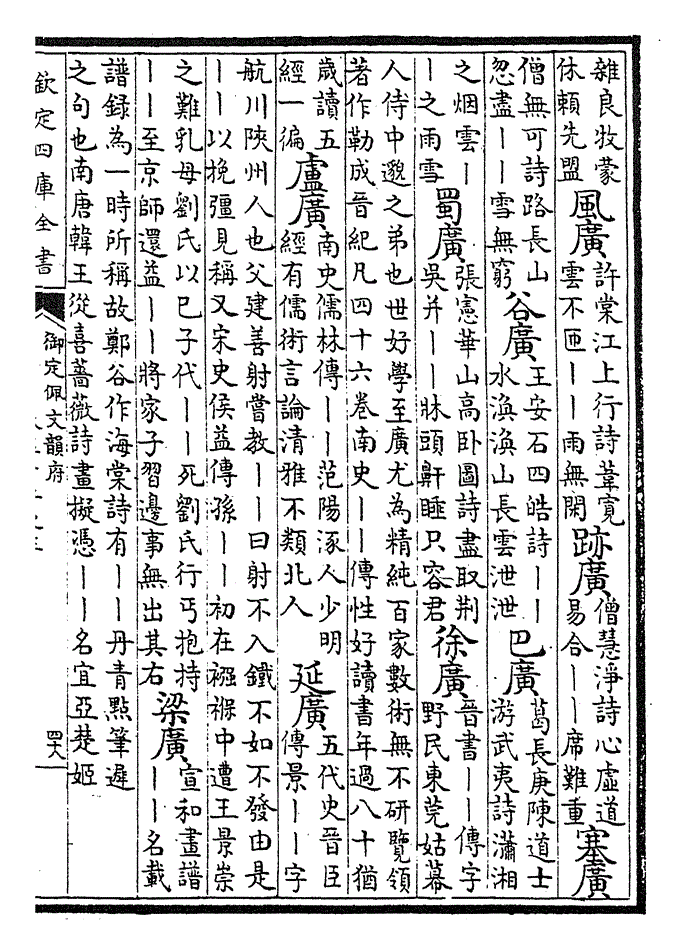 雜良牧蒙
休賴先盟
風廣
許棠江上行詩葦寛
雲不匝丨丨雨無閒
跡廣
僧慧淨詩心虛道
易合丨丨席難重
塞廣
僧無可詩路長山
忽盡丨丨雪無窮
谷廣
王安石四皓詩丨丨
水渙渙山長雲泄泄
巴廣
葛長庚陳道士
游武夷詩瀟湘
之烟雲丨
丨之雨雪
蜀廣
張憲華山高卧圖詩盡取荆
吳并丨丨牀頭鼾睡只容君
徐廣
晉書丨丨傳字
野民東莞姑幕
人侍中邈之弟也世好學至廣尤為精純百家數術無不研覽領
著作勒成晉紀凡四十六卷南史丨丨傳性好讀書年過八十猶
歲讀五
經一徧
盧廣
南史儒林傳丨丨范陽涿人少明
經有儒術言論清雅不類北人
延廣
五代史晉臣
傳景丨丨字
航川陜州人也父建善射嘗教丨丨曰射不入鐵不如不發由是
丨丨以挽彊見稱又宋史侯益傳孫丨丨初在襁褓中遭王景崇
之難乳母劉氏以已子代丨丨死劉氏行丐抱持
丨丨至京師還益丨丨將家子習邊事無出其右
梁廣
宣和畫譜
丨丨名載
譜録為一時所稱故鄭谷作海棠詩有丨丨丹青點筆遲
之句也南唐韓王從喜薔薇詩畫擬憑丨丨名宜亞楚姬
欽定四庫全書
御定佩文韻府
四十八